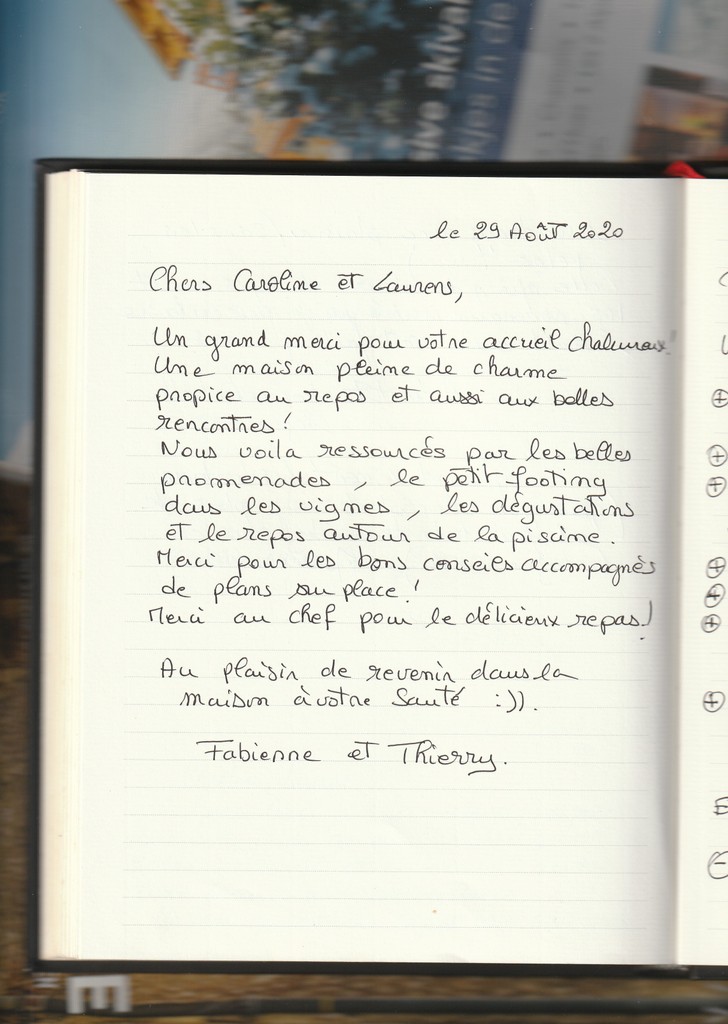 le 29 Août 2020
Chers Caroline et Laurens,
Un grand merci pour votre accueil chaleureux!
Une maison pleine de charme
propice au repos et aussi aux belles
rencontres!
Nous voila ressourcés par les belles
promenades, le petit footing
dans les vignes, les dégustations
et le repos autour de la piscine.
Merci pour les bons conseils accompagnés
de plans sur place!
Merci au chef pour le délicieux repas!
Au plaisir de revenir dans la
maison à votre Santé :)).
Fabienne et Thierry.
E